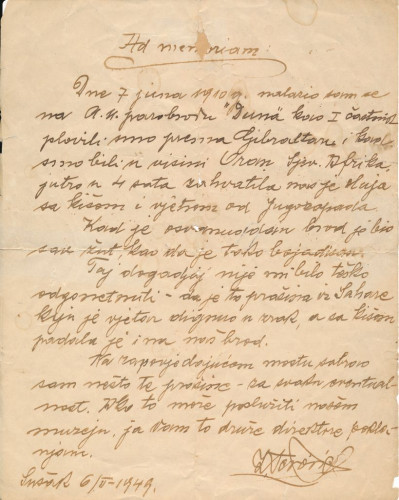 Ad memoriam:
Dne 7 juna 1910 g. nalazio sam se
na A. U. parobrodu "Duna" kao I častnik
plovili smo prema Gibraltaru, i kad
smo bili u visini Oran Sjev. Afrika,
jutro u 4 sata zahvatila nas je oluja
sa kišom i vjetrom od Jugozapada
Kad je osvanuo dan brod je bio
sav žut, kao da je tako bojadisan.
Taj dogadjaj nije mi bilo teško
odgonetnuti - da je to prašina iz Sahare
koju je vjetar dignuo u zrak, a sa kišom
padala je i na naš brod.
Na zapovjedajućem mostu sabrao
sam nešto te prašine - za svaku eventual-
nost. Ako to može poslužiti našem
muzeju, ja Vam to druže direktore, pokla-
njam.
Sušak 6/V-1949.